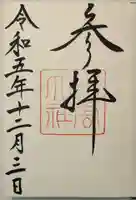 参拝
令和五年十二月三日